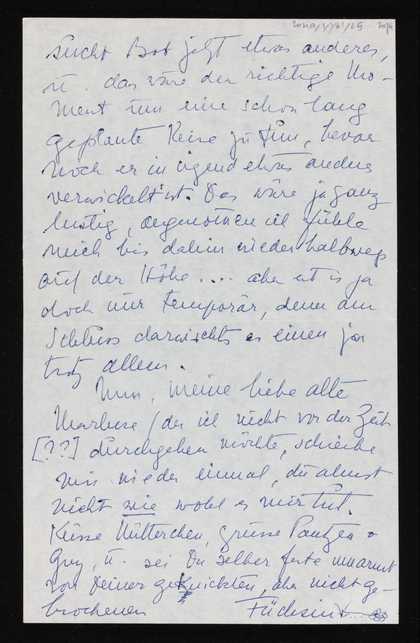 sucht Bob jetzt etwas anderes,
u. das wäre der richtige Mo-
ment um eine schon lang
geplante Reise zu tun, bevor
noch er in irgend etwas anderes
verwickelt ist. Das wäre ja ganz
lustig, angenommen ich fühle
mich bis dahin wieder halbwegs
auf der Höhe .... aber es is ja
doch nur temporär, denn am
Schluss derwischts es einen ja
trotz allem.
Nun, meine liebe alte
(der ich nicht vor der Zeit
[??] durchgehen möchte, schreibe
mir wieder einmal, du ahnst
nicht wie wohl es mir tut.
Küsse Mütterchen, grüsse
Guy, u. sei Du selber feste umarmt
von Deiner geknickten, aber nicht ge-
brochenen Füchsin